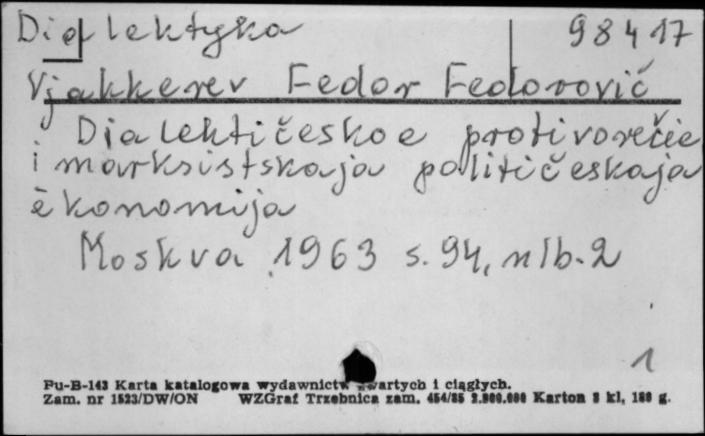 Dialektyka 98417
Vjakkerev Fedor Fedorovič
Dialektičeskoe protivorečie
i marksistskaja političeskaja
èkonomija
Moskva 1963 s. 94, nlb. 2
1
Pu-B-143 Karta katalogowa wydawnictw zwartych i ciągłych.
Zam. nr 1523/DW/ON WZGraf Trzebnica zam. 454/85 2.000.000 Karton 3 kl, 180 g.